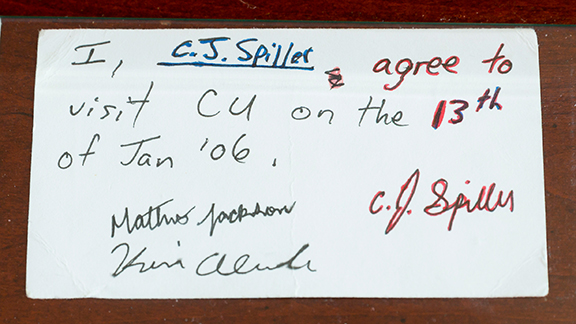 I, C.J. Spiller agree to
visit CU on the 13th
of Jan '06.
Mathew Jackson
C.J. Spiller